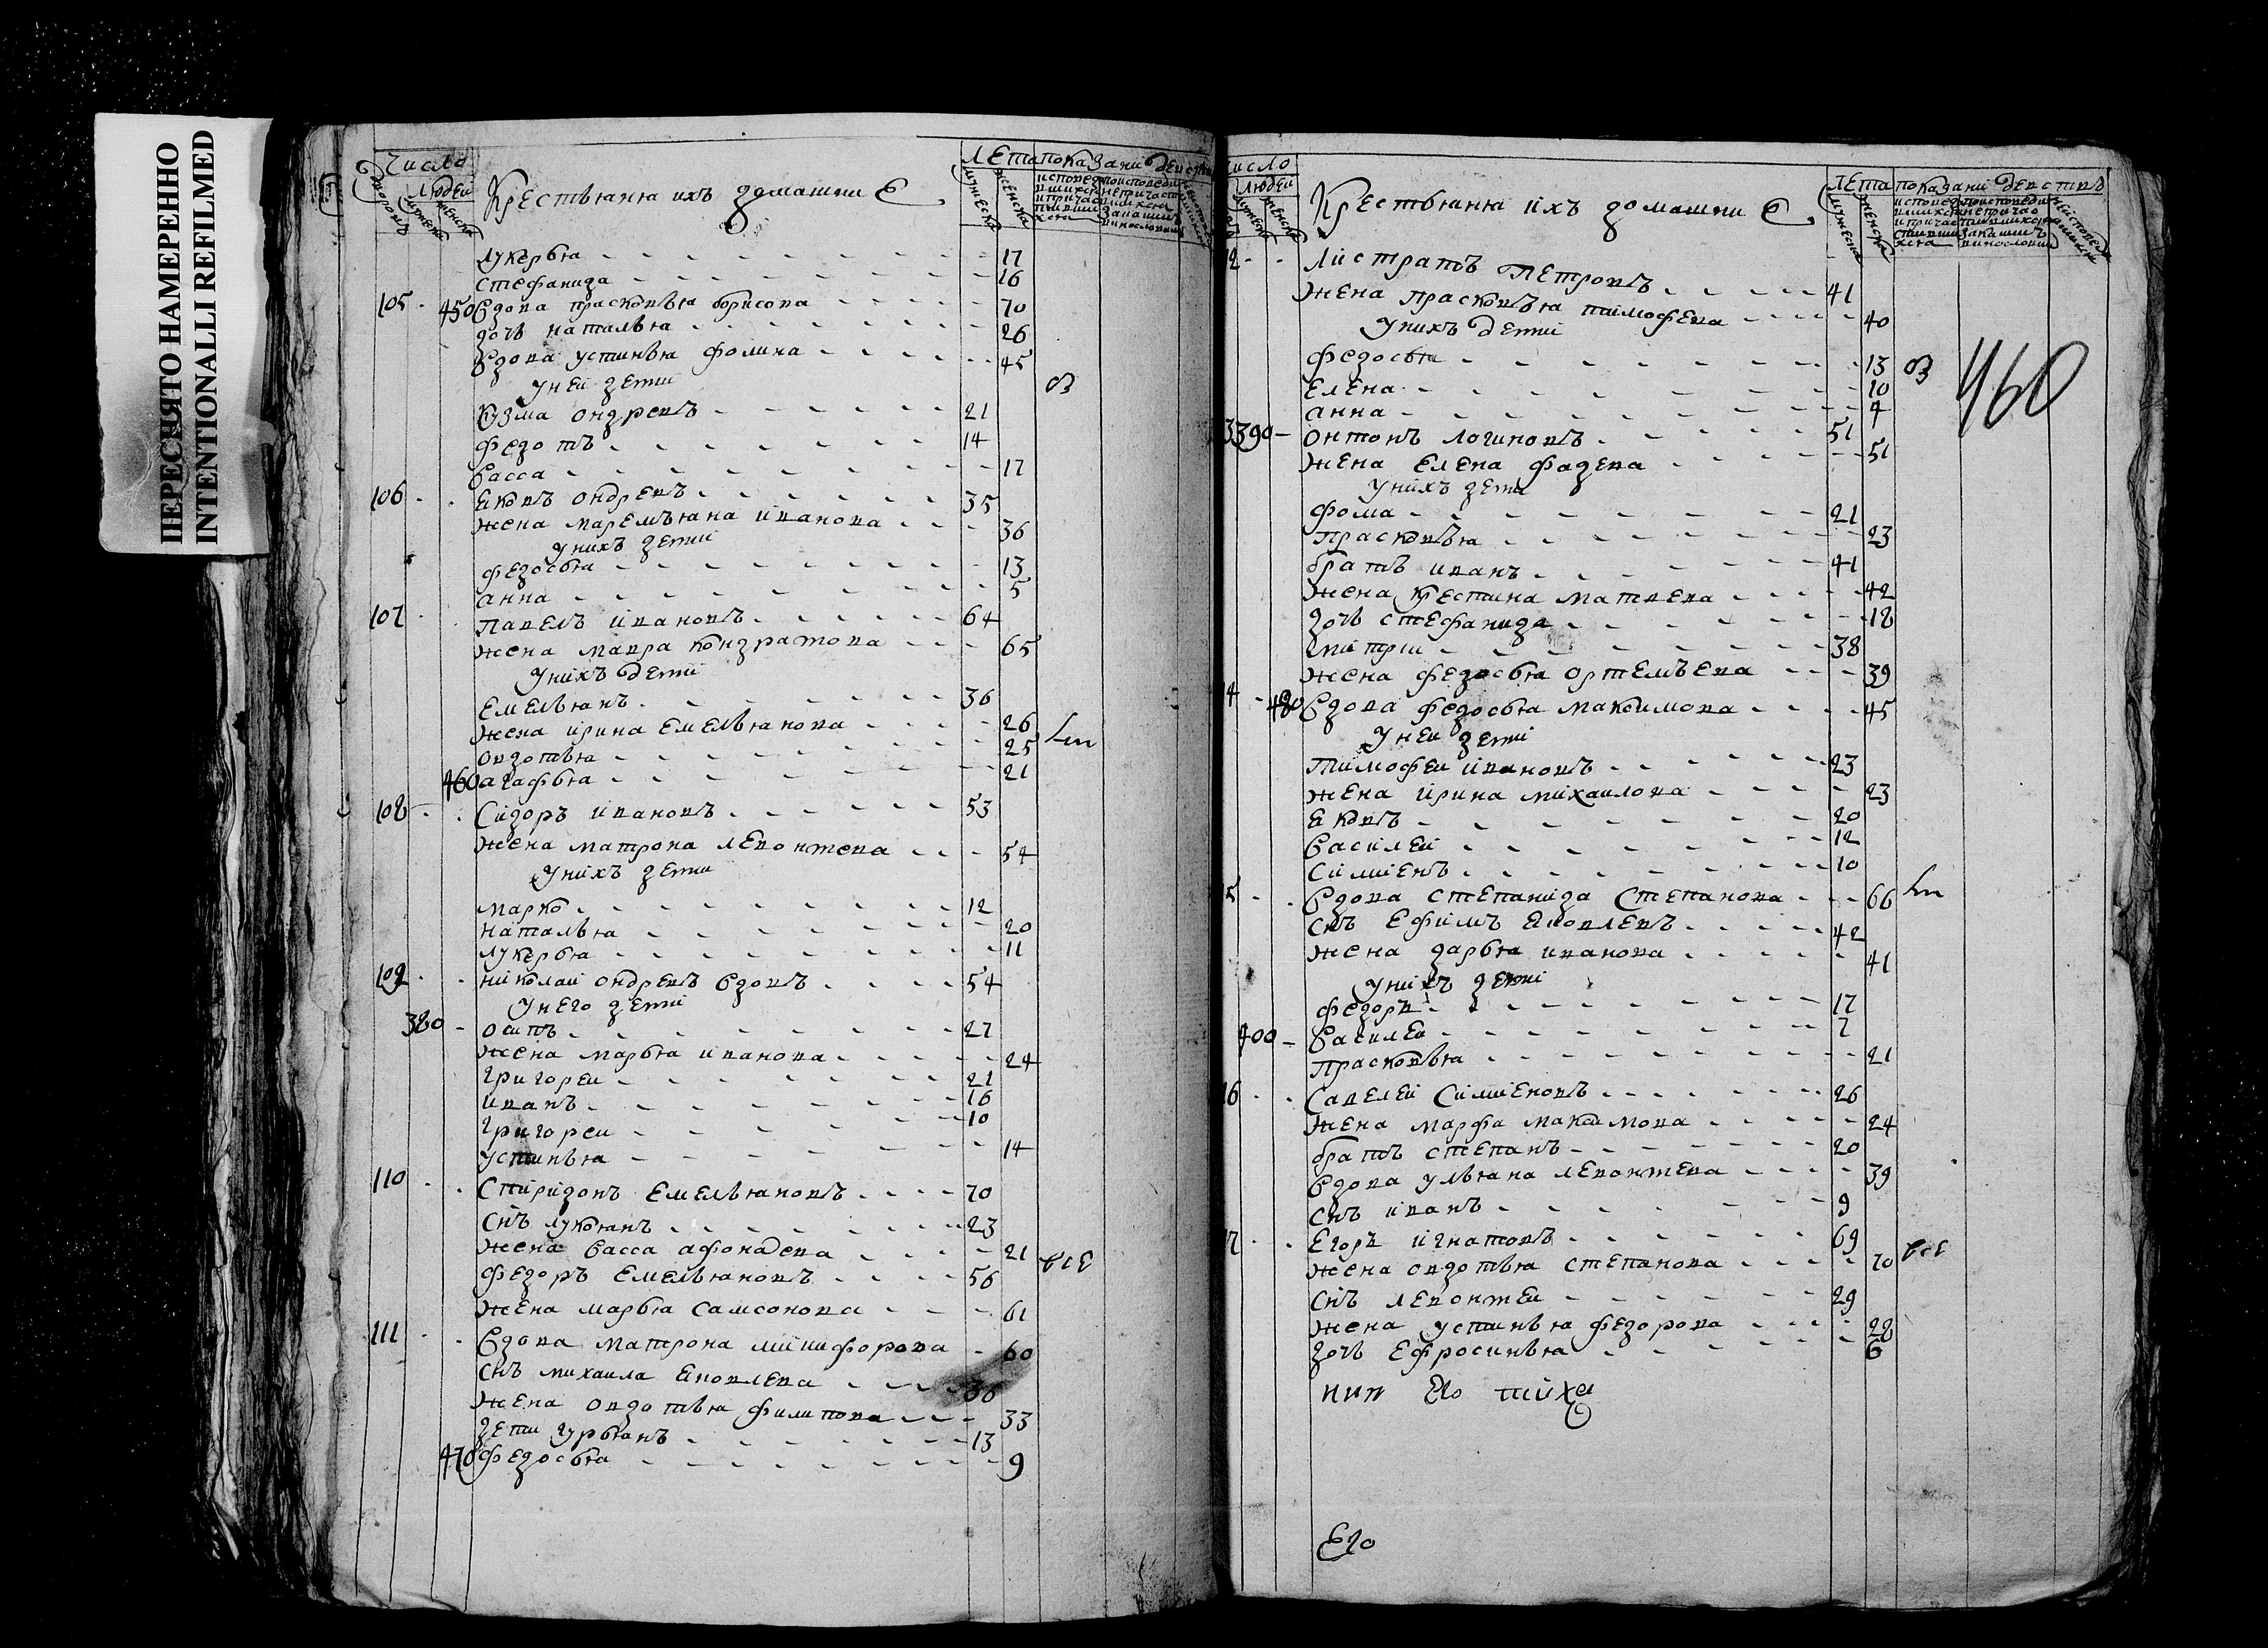 ПЕРЕСНЯТО НАМЕРЕННО
INTENTIONALLI REFILMED
Число
Людей
Крестьяня ихъ домашние
Лета
показани действ
Лукерья 17
Стефанида 16
105 450 Вдова Прасковья Борисова 70
дочь Наталья 26
Вдова Устинья Фомина 45
У ней дети
Кузма Ондреевъ 21
Федотъ 14
Васса 17
106 Яковъ Ондреевъ 35
Жена Маремьяна Иванова 36
У нихъ дети
Федосья 13
Анна 5
107 Павелъ Ивановъ 64
Жена Мавра Кондратова 65
У нихъ дети
Емельянъ 36
Жена Ирина Емельянова 26
Овдотья 25
460 Агафья 21
108 Сидоръ Ивановъ 53
Жена Матрона Левонтева 54
У нихъ дети
Марко 12
Наталья 20
Лукерья 11
109 Николай Ондревъ вдовъ 54
У него дети
380 Осипъ 27
Жена Марья Иванова 24
Григореи 21
Иванъ 16
Григореи 10
Устинья 14
110 Спиридонъ Емельяновъ 70
Снъ Лукоянъ 23
Жена Васса Афонасева 21
все
Федоръ Емельяновъ 56
Жена Марья Самсонова 61
111 Вдова Матрона Никифорова 60
Снъ Михаила Яковлева 36
Жена Овдотья Филипова 33
Дети Гурьянъ 13
470 Федосья 9
Число
Людей
Крестьяня ихъ домашние
Лета
показани действ
12 Листратъ Петровъ 41
Жена Прасковья Тимофева 40
У нихъ дети
460
Федосья 13
Елена 10
Анна 4
3 390 Онтонъ Логиновъ 51
Жена Елена Фадева 51
У нихъ дети
Фома 21
Прасковья 23
братъ Иванъ 41
Жена Крестина Матвева 42
дочь Стефанида 18
Митрии 38
Жена Федосья Ортемьева 39
14 480 Вдова Федосья Максимова 45
У ней дети
Тимофеи Ивановъ 23
Жена Ирина Михаилова 23
Яковъ 20
Василеи 12
Симиенъ 10
5 Вдова Степанида Степанова 66
Снъ Ефимъ Яковлевъ 42
Жена Дарья Иванова 41
У нихъ дети
Федоръ 17
400 Василеи 7
Прасковья 21
16 Савелеи Симиеновъ 26
Жена Марфа Максимова 24
братъ Степанъ 20
Вдова Ульяна Левонтева 39
Снъ Иванъ 9
17 Егоръ Игнатовъ 69
Жена Овдотья Степанова 70
все
Снъ Левонтеи 29
Жена Устинья Федорова 28
дочь Ефросинья 6
Его